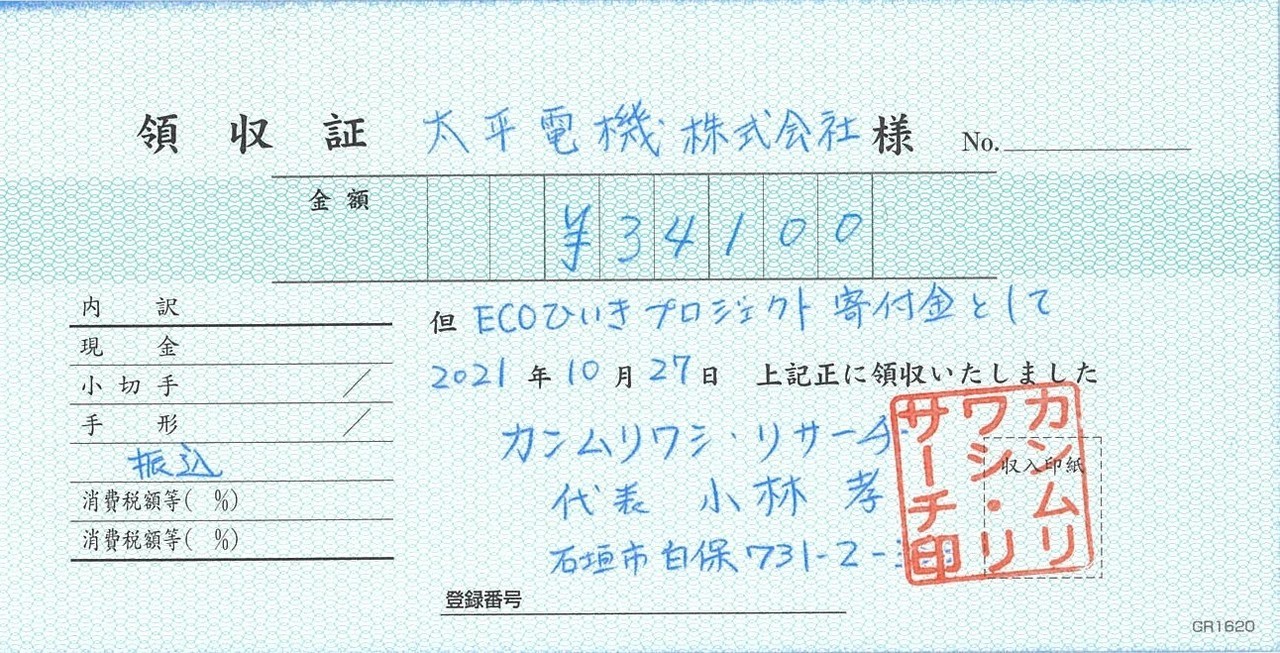 領収証 太平電機株式会社様 No.
金額 ¥34100
但 ECOひいきプロジェクト寄付金として
2021年10月27日 上記正に領収いたしました
内訳
現金
小切手 /
手形 /
振込
消費税額等( %)
消費税額等( %)
カンムリワシ・リサーチ
代表 小林 孝
石垣市白保731-2-
カンムリ
ワシ・リ
サーチ印
収入印紙
登録番号
GR1620